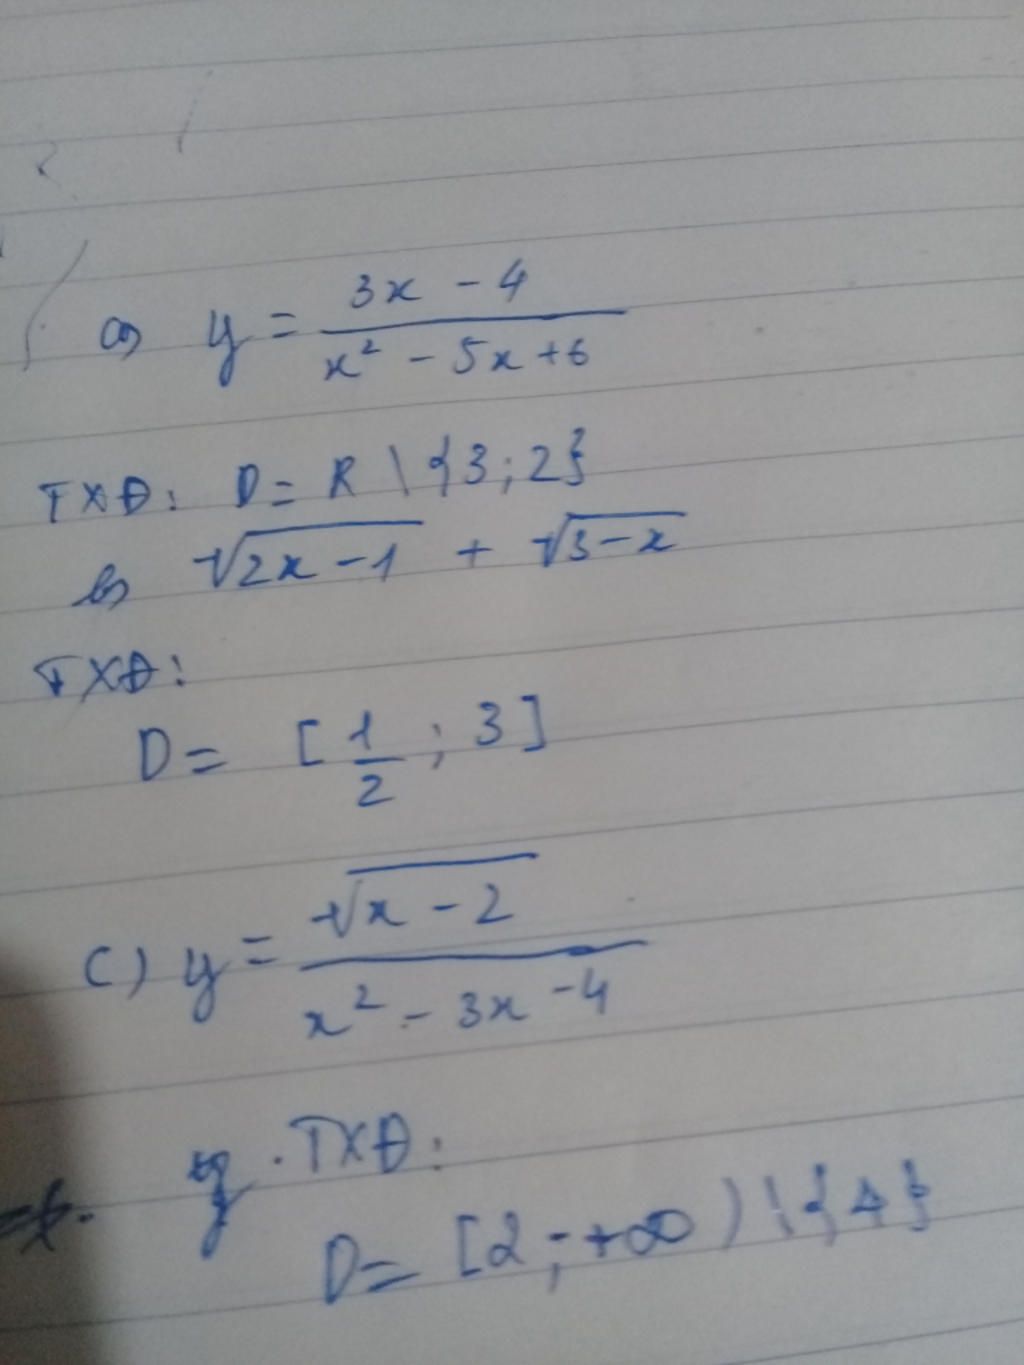 a) y = (3x - 4)/(x² - 5x + 6)
TXĐ: D = R \ {3; 2}
b) √(2x - 1) + √(3 - x)
TXĐ:
D = [1/2 ; 3]
c) y = √(x - 2)/(x² - 3x - 4)
y . TXĐ:
D = [2 ; +∞) \ {4}